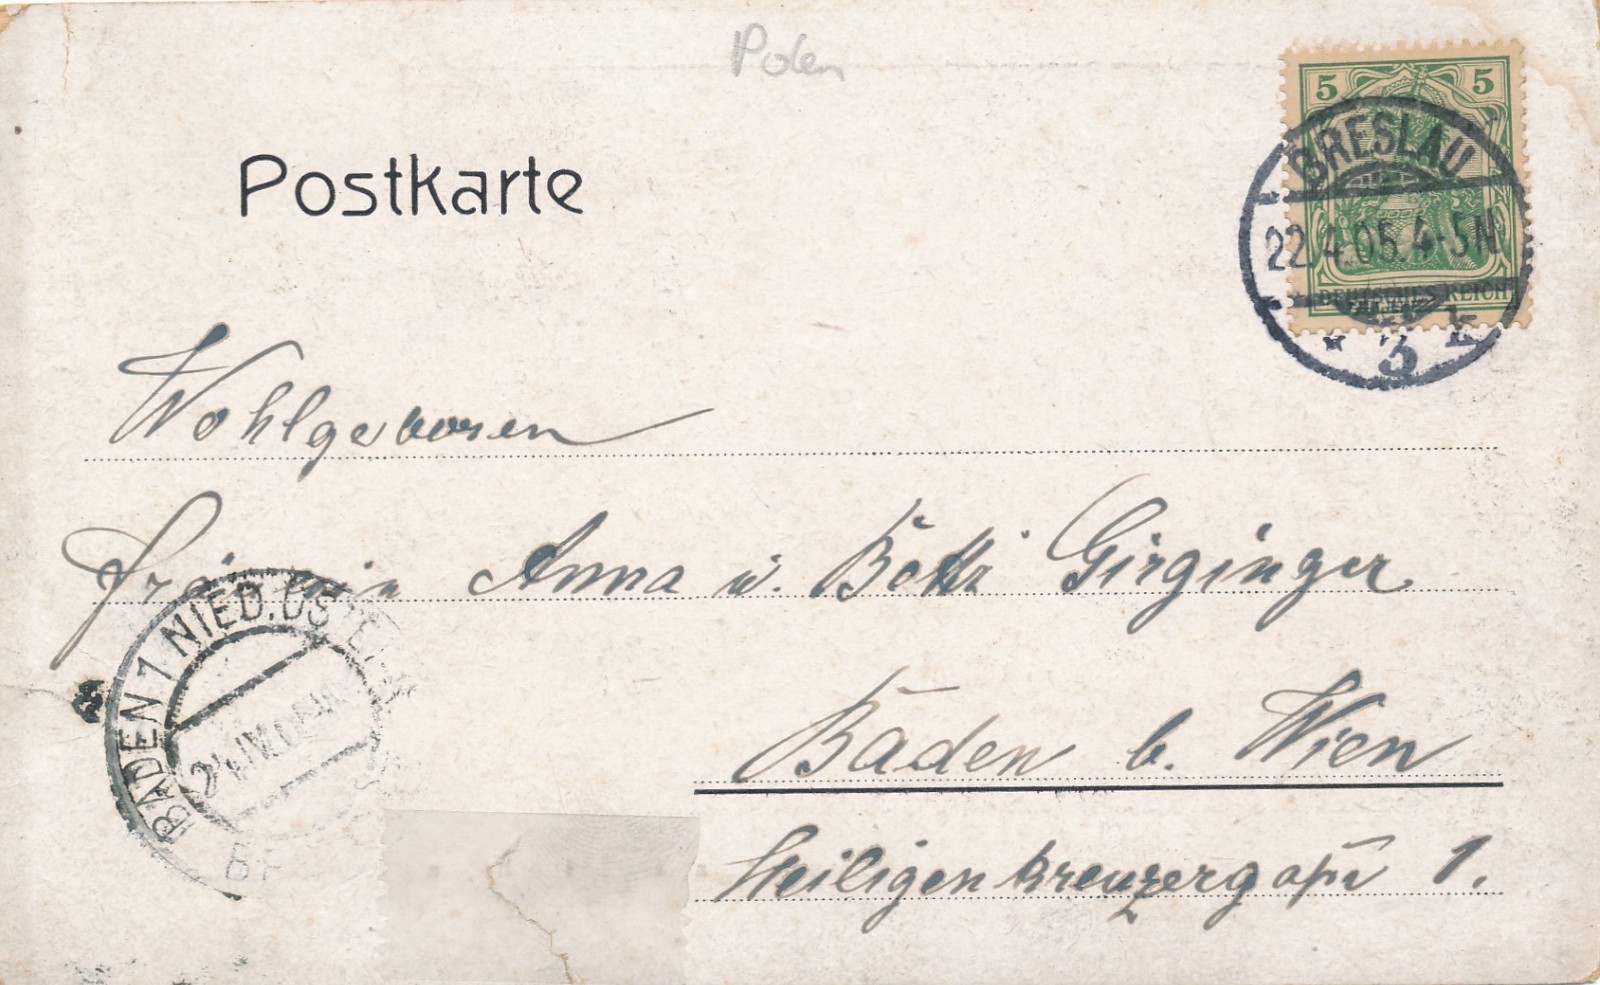 Polen
5 5
BRESLAU
22.4.05. 4-5N
DEUTSCHES REICH
* 3 k
Postkarte
Wohlgeboren
Fräulein Anna u. Girginger
BADEN 1 NIED.ÖSTERR
Baden b. Wien
Heiligenkreuzergasse 1.